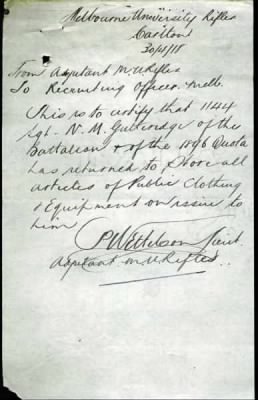 Melbourne University Rifles
Carlton
30/4/18
From Adjutant M.U. Rifles
To Recruiting Officer. Melb.
This is to certify that 1144
Sgt. N. M. Gutteridge of the
Battalion & of the 1896 Quota
has returned to Store all
articles of Public Clothing
& Equipment on issue to
him
Lieut.
Adjutant M.U. Rifles.